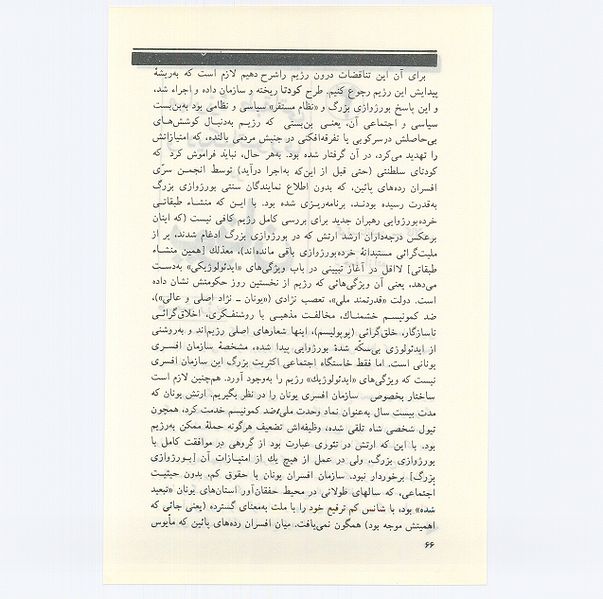 برای آن این تناقضات درون رژیم راشرح دهیم لازم است که به‌ریشهٔ
پیدایش این رژیم رجوع کنیم. طرح کودتا ریخته و سازمان داده و اجراء شد،
و این پاسخ بورژوازی بزرگ و «نظام مستقر» سیاسی و نظامی بود به‌بن‌بست
سیاسی و اجتماعی آن، یعنی بن‌بستی که رژیم به‌دنبال کوشش‌های
بی‌حاصلش درسرکوبی یا تفرقه‌افکنی در جنبش مردمی بالنده، که امتیازاتش
را تهدید می‌کرد، در آن گرفتار شده بود. به‌هر حال، نباید فراموش کرد که
کودتای سلطنتی (حتی قبل از این‌که به‌اجرا درآید) توسط انجمن سرّی
افسران رده‌های پائین، که بدون اطلاع نمایندگان سنتی بورژوازی بزرگ
به‌قدرت رسیده بودند، برنامه‌ریزی شده بود. با این که منشاء طبقاتی
خرده‌بورژوایی رهبران جدید برای بررسی کامل رژیم کافی نیست (که اینان
برعکس درجه‌داران ارشد ارتش که در بورژوازی بزرگ ادغام شدند، پر از
ملیت‌گرائی مستبدانهٔ خرده‌بورژوازی باقی مانده‌اند)، معذلك [همین منشاء
طبقاتی] لااقل در آغاز تبیینی در باب ویژگی‌های «ایدئولوژیکی» به‌دست
می‌دهد، یعنی آن ویژگی‌هائی که رژیم از نخستین روز حکومتش نشان داده
است. دولت «قدرتمند ملی»، تعصب نژادی («یونان ـ نژاد اصلی و عالی»)،
ضد کمونیسم خشمناك، مخالفت مذهبی با روشنفکری، اخلاق‌گرائی
ناسازگار، خلق‌گرائی (پوپولیسم)، اینها شعارهای اصلی رژیم‌اند و به‌روشنی
از ایدئولوژی بی‌سکّه شدهٔ بورژوایی پیدا شده، مشخصهٔ سازمان افسری
یونانی است. اما فقط خاستگاه اجتماعی اکثریت بزرگ این سازمان افسری
نیست که ویژگی‌های «ایدئولوژیك» رژیم را به‌وجود آورد. هم‌چنین لازم است
ساختار بخصوص سازمان افسری یونان را در نظر بگیریم. ارتش یونان که
مدت بیست سال به‌عنوان نماد وحدت ملی ضد کمونیسم خدمت کرد، همچون
تیول شخصی شاه تلقی شده، وظیفه‌اش تضعیف هرگونه حملهٔ ممکن به‌رژیم
بود. با این که ارتش در تئوری عبارت بود از گروهی در موافقت کامل با
بورژوازی بزرگ، ولی در عمل از هیچ یك از امتیازات آن [بورژوازی
بزرگ] برخوردار نبود. سازمان افسران یونان با حقوق کم، بدون حیثیت
اجتماعی، که سالهای طولانی در محیط خفقان‌آور استان‌های یونان «تبعید
شده» بود، با شانس کم ترفیع خود را با ملت به‌معنای گسترده (یعنی جائی که
اهمیتش موجه بود) همگون نمی‌یافت. میان افسران رده‌های پائین که مأیوس
۶۶